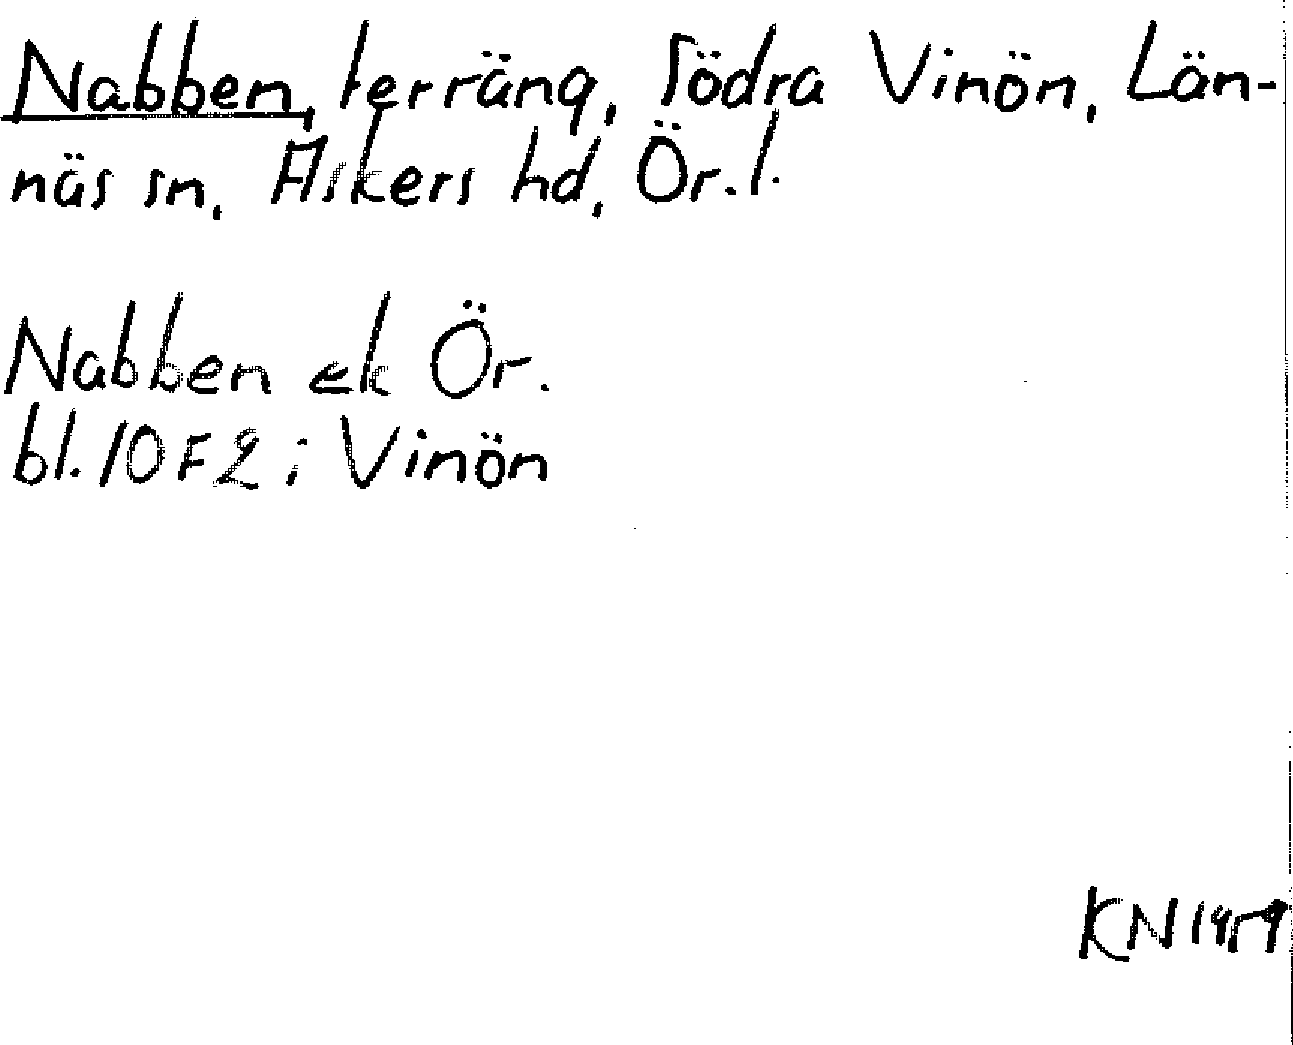 Nabben, terräng, Södra Vinön, Län-
näs sn, Askers hd, Ör. l.
Nabben ek Ör.
bl. 10F2i Vinön
KN 1959